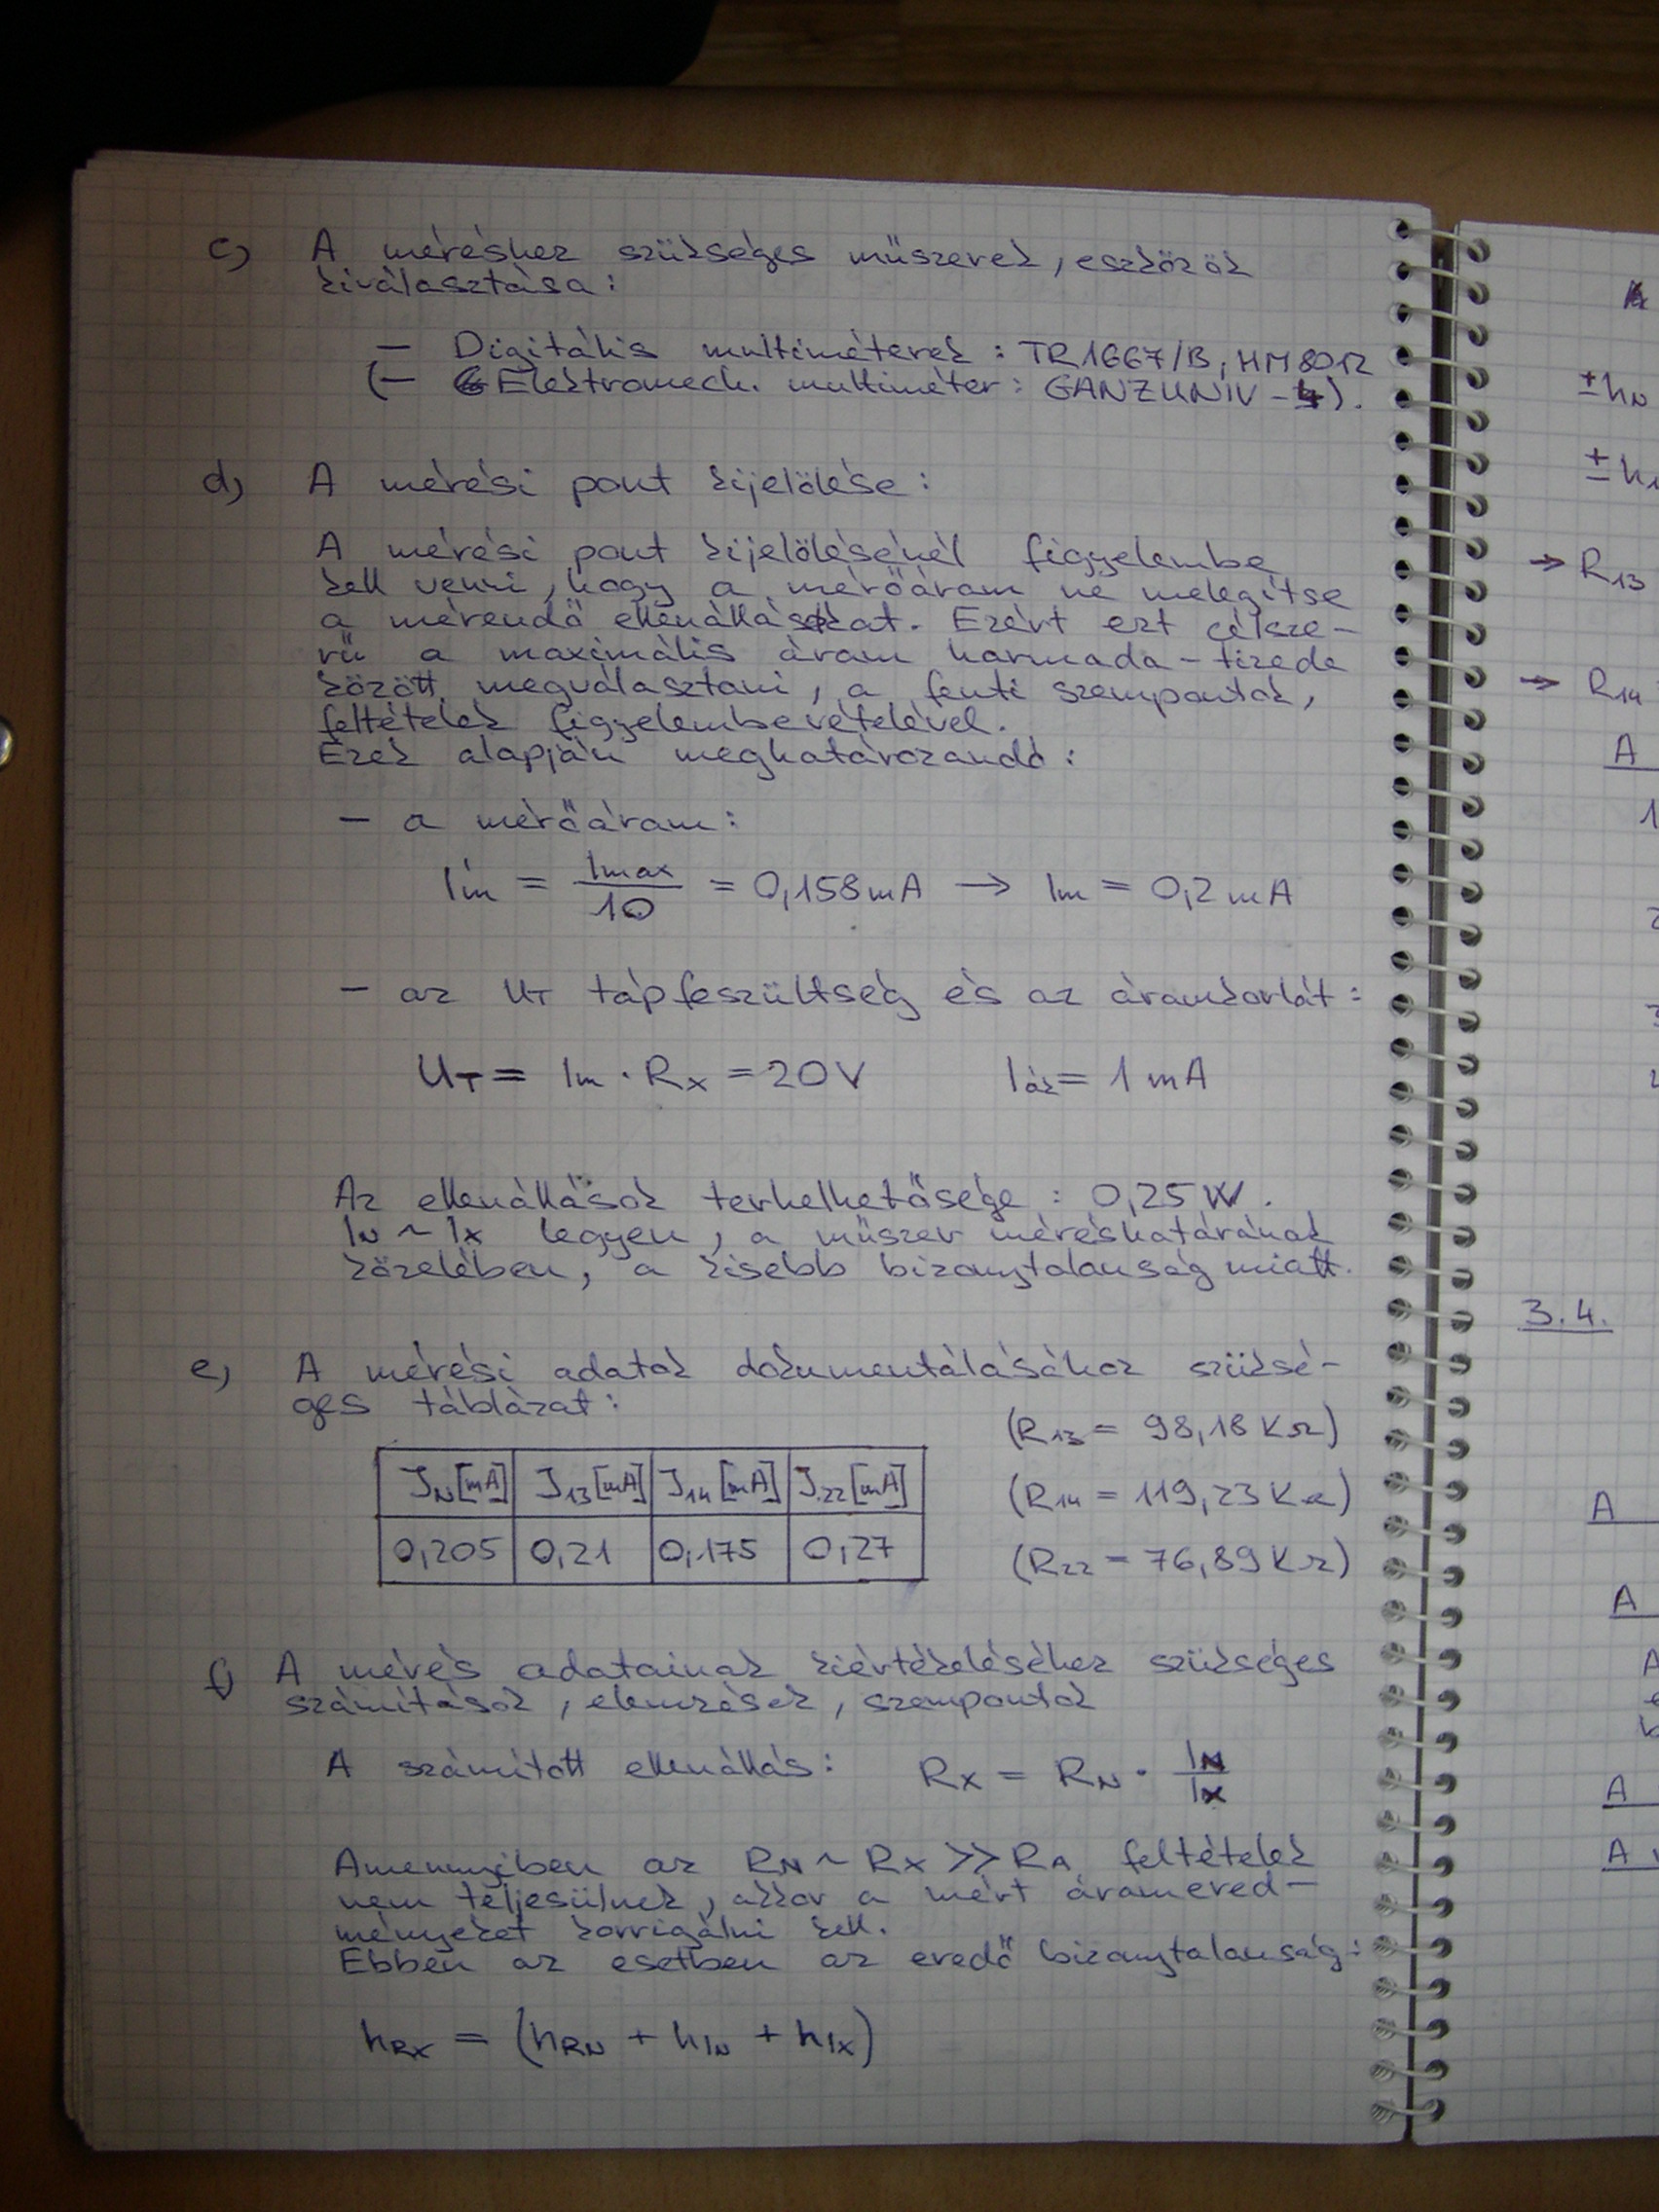 c) A méréshez szükséges műszerek, eszközök
kiválasztása:
– Digitális multiméterek: TR1667/B, HM8012
(– Elektromech. multiméter: GANZUNIV-4).
d) A mérési pont kijelölése:
A mérési pont kijelölésénél figyelembe
kell venni, hogy a mérőáram ne melegítse
a mérendő ellenállásokat. Ezért ezt célsze-
rű a maximális áram harmada-tizede
között megválasztani, a fenti szempontok,
feltételek figyelembevételével.
Ezek alapján meghatározandó:
– a mérőáram:
Im' = Imax/10 = 0,158mA → Im = 0,2mA
– az UT tápfeszültség és az áramkorlát:
UT = Im · Rx = 20V Iák = 1mA
Az ellenállások terhelhetősége: 0,25W.
IN ~ Ix legyen, a műszer méréshatárának
közelében, a kisebb bizonytalanság miatt.
e) A mérési adatok dokumentálásához szüksé-
ges táblázat:
(R13 = 98,18 KΩ)
JN[mA] J13[mA] J14[mA] J22[mA]
(R14 = 119,23 KΩ)
0,205 0,21 0,175 0,27
(R22 = 76,89 KΩ)
f) A mérés adatainak kiértékeléséhez szükséges
számítások, elemzések, szempontok
A számított ellenállás: Rx = RN · IN/Ix
Amennyiben az RN ~ Rx >> RA feltételek
nem teljesülnek, akkor a mért áramered-
ményeket korrigálni kell.
Ebben az esetben az eredő bizonytalanság:
hRx = (hRN + hIN + hIx)
A
±hN
±h
→ R13
→ R14
A
1
3.4.
A
A
A
A